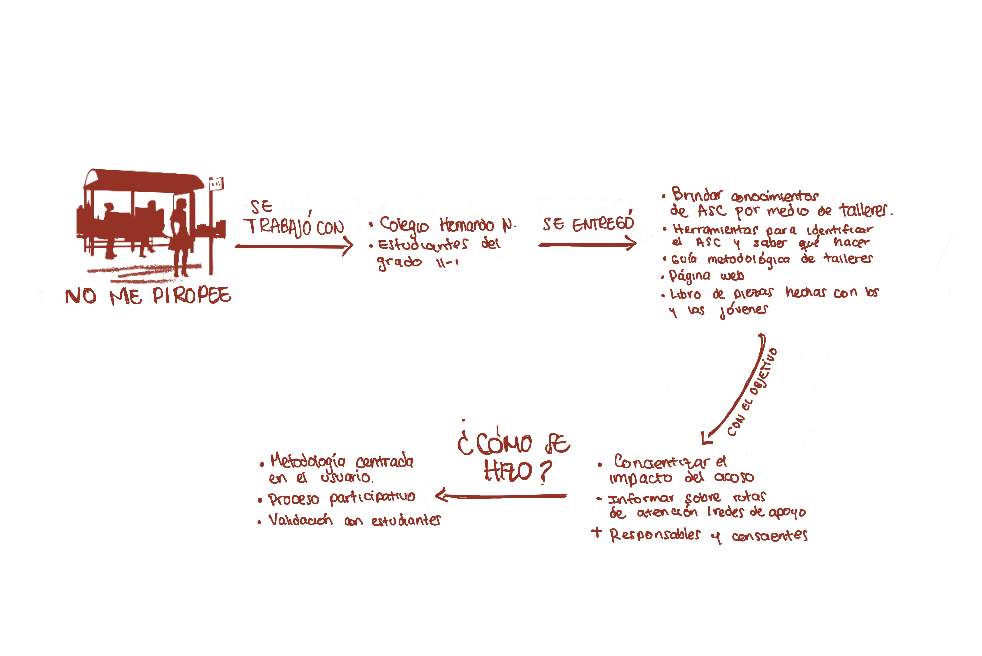 NO ME PIROPEE
SE
TRABAJÓ CON
• Colegio Hernando N.
• Estudiantes del
grado 11-1
SE ENTREGÓ
• Brindar conocimientos
de ASC por medio de talleres.
• Herramientas para identificar
el ASC y saber qué hacer
• Guía metodológica de talleres
• Página web
• Libro de piezas hechas con los
y las jóvenes
CON EL OBJETIVO
• Concientizar el
impacto del acoso
- Informar sobre rutas
de atención / redes de apoyo
+ Responsables y conscientes
¿CÓMO SE
HIZO?
• Metodología centrada
en el usuario.
• Proceso participativo
• Validación con estudiantes